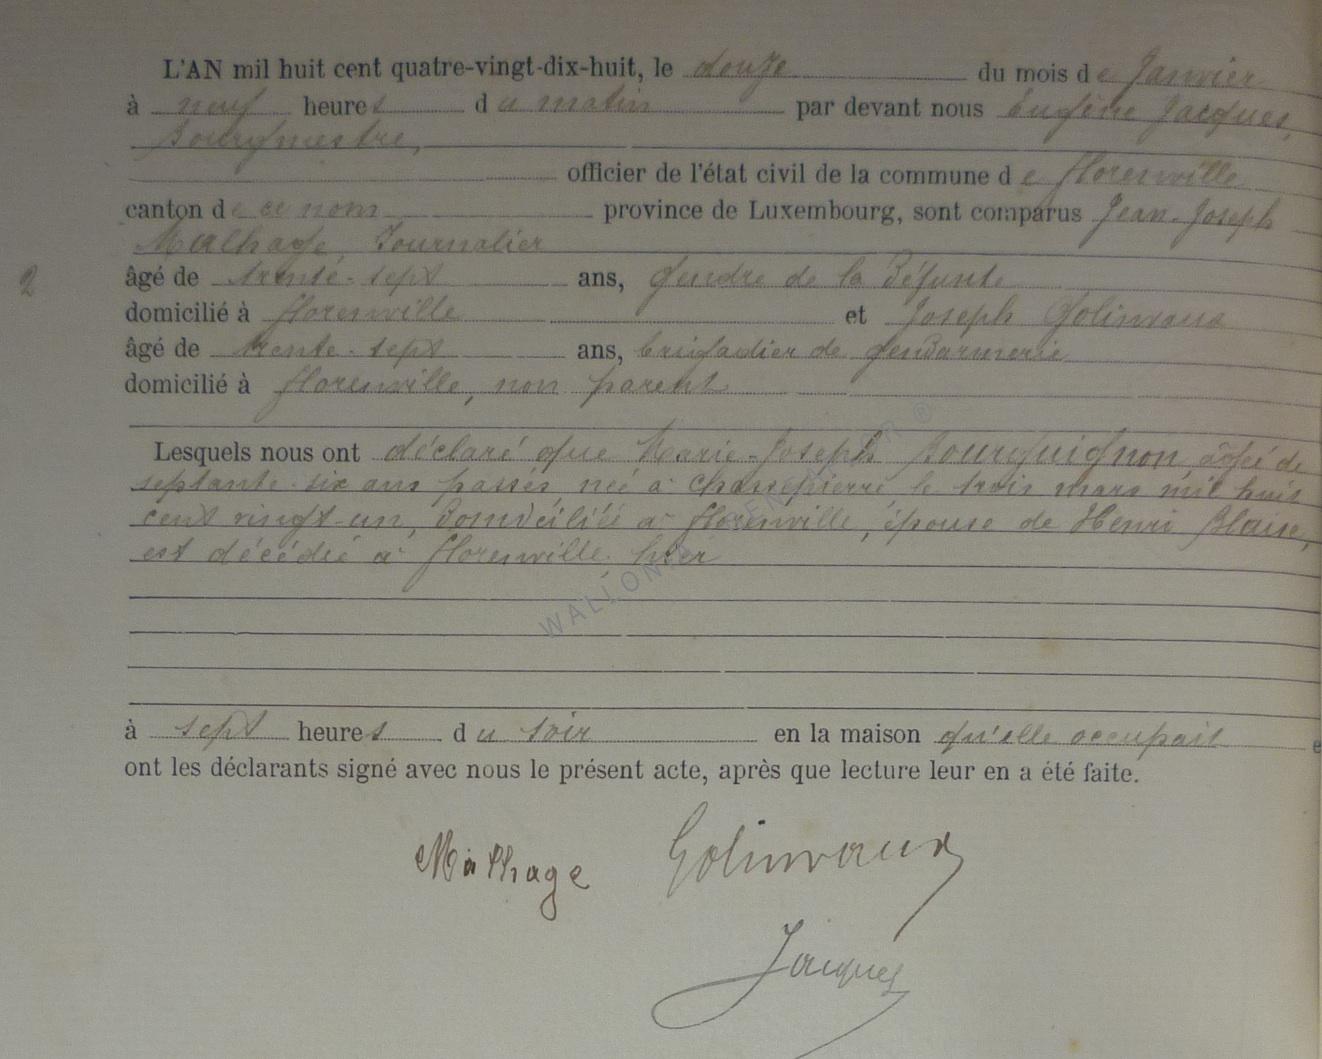 L'AN mil huit cent quatre-vingt-dix-huit, le douze du mois de Janvier
à neuf heures du matin par devant nous Eugène Jacques,
Bourgmestre,
officier de l'état civil de la commune de Florenville
canton de ce nom province de Luxembourg, sont comparus Jean-Joseph
Malhage, Journalier
2
âgé de trente-sept ans, gendre de la défunte
domicilié à Florenville et Joseph Golinvaux
âgé de trente-sept ans, brigadier de gendarmerie
domicilié à Florenville, non parent
Lesquels nous ont déclaré que Marie-Joseph Bourguignon âgée de
septante-six ans passés, née à Chassepierre, le trois mars mil huit
cent vingt-un, domiciliée à Florenville, épouse de Henri Blaise,
est décédée à Florenville, hier
à sept heures du soir en la maison qu'elle occupait e
ont les déclarants signé avec nous le présent acte, après que lecture leur en a été faite.
Malhage Golinvaux
Jacques